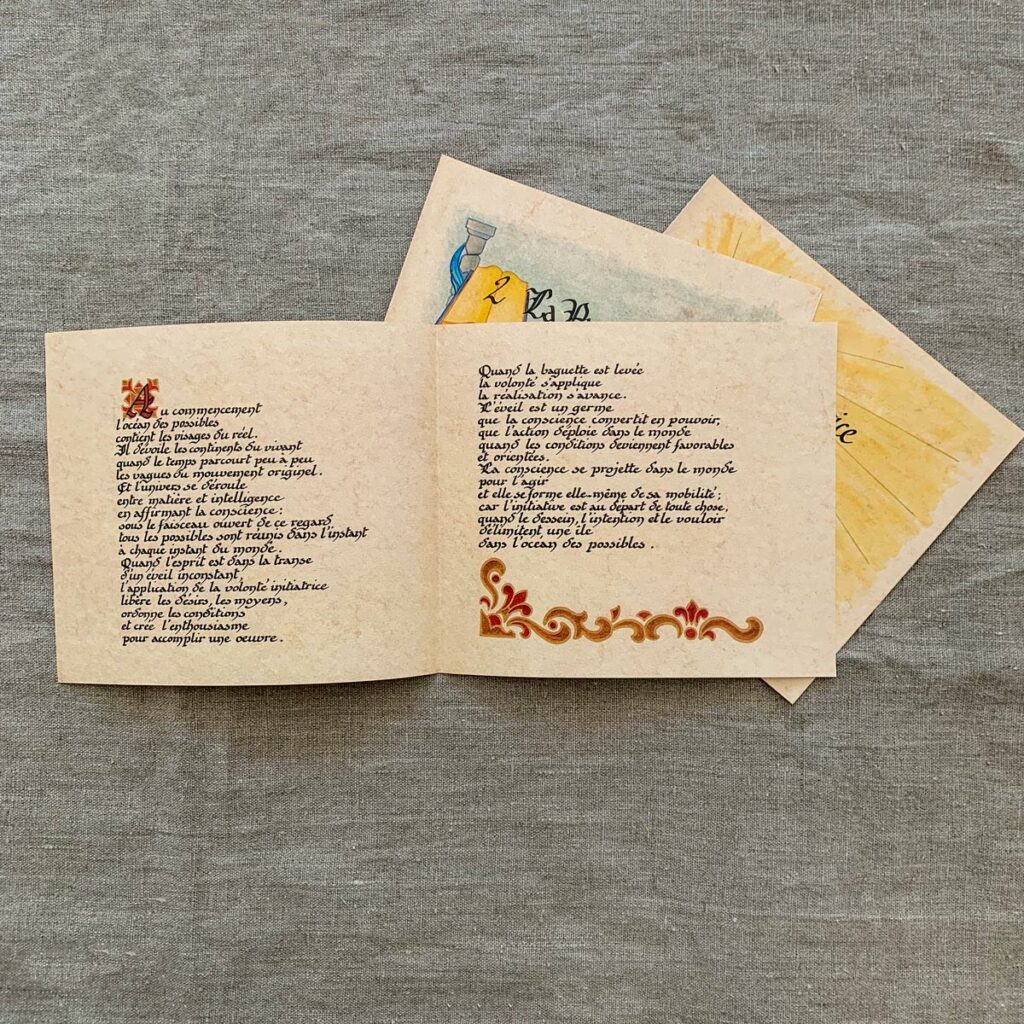 Au commencement
l'océan des possibles
contient les visages du réel.
Il dévoile les continents du vivant
quand le temps parcourt peu à peu
les vagues du mouvement originel.
Et l'univers se déroule
entre matière et intelligence
en affirmant la conscience :
sous le faisceau ouvert de ce regard
tous les possibles sont réunis dans l'instant
à chaque instant du monde.
Quand l'esprit est dans la transe
d'un éveil inconstant,
l'application de la volonté initiatrice
libère les désirs, les moyens,
ordonne les conditions
et crée l'enthousiasme
pour accomplir une œuvre.
Quand la baguette est levée
la volonté s'applique
la réalisation s'avance.
L'éveil est un germe
que la conscience convertit en pouvoir,
que l'action déploie dans le monde
quand les conditions deviennent favorables
et orientées.
La conscience se projette dans le monde
pour l'agir
et elle se forme elle-même de sa mobilité ;
car l'initiative est au départ de toute chose,
quand le dessein, l'intention et le vouloir
délimitent une île
dans l'océan des possibles.
2 La
ice